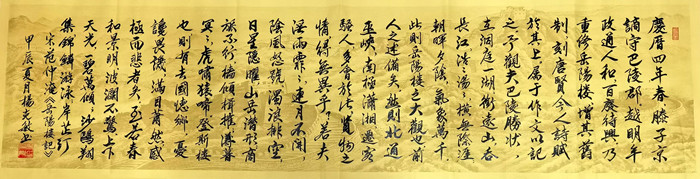 慶曆四年春滕子京
謫守巴陵郡越明年
政通人和百廢待興乃
重修岳陽樓增其舊
制刻唐賢今人詩賦
於其上屬予作文以記
之予觀夫巴陵勝狀
在洞庭一湖銜遠山吞
長江浩浩湯湯橫無際涯
朝暉夕陰氣象萬千
此則岳陽樓之大觀也前
人之述備矣然則北通
巫峽南極瀟湘遷客
騷人多會於此覽物之
情得無異乎若夫
淫雨霏霏連月不開
陰風怒號濁浪排空
日星隱曜山岳潛形商
旅不行檣傾楫摧薄暮
冥冥虎嘯猿啼登斯樓
也則有去國懷鄉憂
讒畏譏滿目蕭然感
極而悲者矣至若春
和景明波瀾不驚上下
天光一碧萬頃沙鷗翔
集錦鱗游泳岸芷汀
宋范仲淹《岳陽樓記》
甲辰夏月楊光